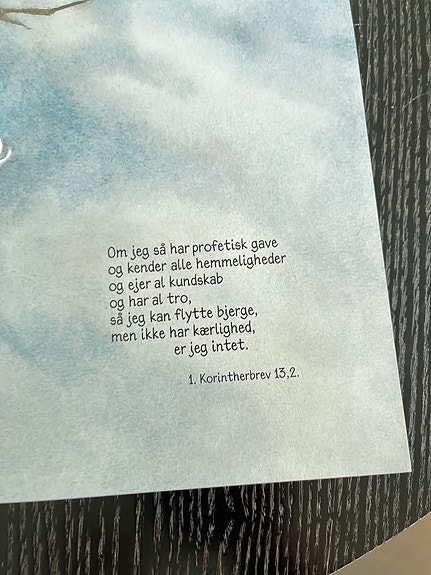 Om jeg så har profetisk gave
og kender alle hemmeligheder
og ejer al kundskab
og har al tro,
så jeg kan flytte bjerge,
men ikke har kærlighed,
er jeg intet.
1. Korintherbrev 13,2.